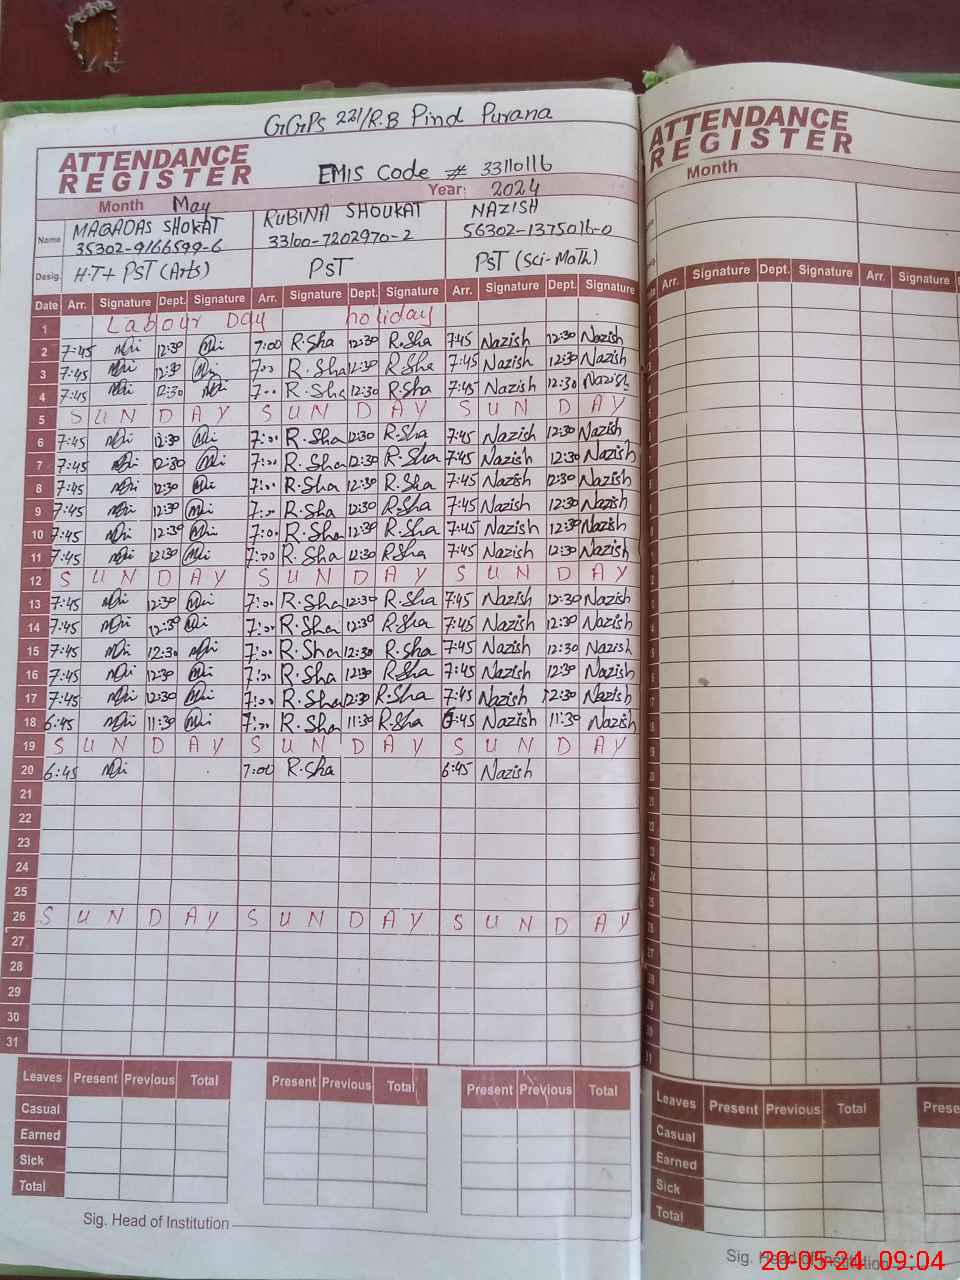 GGPS 221/R.B Pind Purana
ATTENDANCE
REGISTER
EMIS Code # 33110116
Month May Year: 2024
Name MAQADAS SHOKAT RUBINA SHOUKAT NAZISH
35302-9166599-6 33100-7202970-2 56302-1375016-0
Desig. H.T+ PST (Arts) PST PST (Sci-Math)
Date Arr. Signature Dept. Signature Arr. Signature Dept. Signature Arr. Signature Dept. Signature
1 Labour Day holiday
2 7:45 12:30 7:00 R.Sha 12:30 R.Sha 7:45 Nazish 12:30 Nazish
3 7:45 12:30 7:00 R.Sha 12:30 R.Sha 7:45 Nazish 12:30 Nazish
4 7:45 12:30 7:00 R.Sha 12:30 R.Sha 7:45 Nazish 12:30 Nazish
5 SUNDAY SUNDAY SUNDAY
6 7:45 12:30 7:00 R.Sha 12:30 R.Sha 7:45 Nazish 12:30 Nazish
7 7:45 12:30 7:00 R.Sha 12:30 R.Sha 7:45 Nazish 12:30 Nazish
8 7:45 12:30 7:00 R.Sha 12:30 R.Sha 7:45 Nazish 12:30 Nazish
9 7:45 12:30 7:00 R.Sha 12:30 R.Sha 7:45 Nazish 12:30 Nazish
10 7:45 12:30 7:00 R.Sha 12:30 R.Sha 7:45 Nazish 12:30 Nazish
11 7:45 12:30 7:00 R.Sha 12:30 R.Sha 7:45 Nazish 12:30 Nazish
12 SUNDAY SUNDAY SUNDAY
13 7:45 12:30 7:00 R.Sha 12:30 R.Sha 7:45 Nazish 12:30 Nazish
14 7:45 12:30 7:00 R.Sha 12:30 R.Sha 7:45 Nazish 12:30 Nazish
15 7:45 12:30 7:00 R.Sha 12:30 R.Sha 7:45 Nazish 12:30 Nazish
16 7:45 12:30 7:00 R.Sha 12:30 R.Sha 7:45 Nazish 12:30 Nazish
17 7:45 12:30 7:00 R.Sha 12:30 R.Sha 7:45 Nazish 12:30 Nazish
18 6:45 11:30 7:00 R.Sha 11:30 R.Sha 6:45 Nazish 11:30 Nazish
19 SUNDAY SUNDAY SUNDAY
20 6:45 7:00 R.Sha 6:45 Nazish
21
22
23
24
25
26 SUNDAY SUNDAY SUNDAY
27
28
29
30
31
Leaves Present Previous Total Present Previous Total Present Previous Total
Casual
Earned
Sick
Total
Sig. Head of Institution
ATTENDANCE
REGISTER
Month
Arr. Signature Dept. Signature Arr. Signature
Leaves Present Previous Total Prese
Casual
Earned
Sick
Total
Sig. Head of Institution
20-05-24 09:04